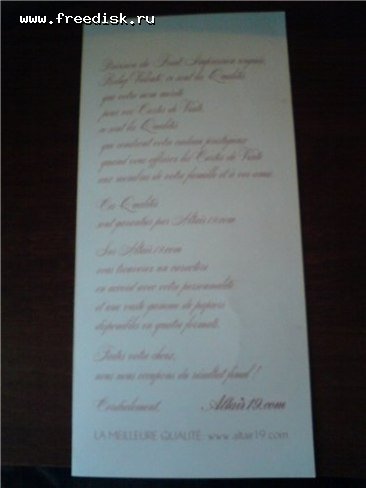 www.freedisk.ru
Précision du Trait, Impression soignée,
Relief Velouté, ce sont les Qualités
que votre nom mérite
pour vos Cartes de Visite,
ce sont les Qualités
qui rendront votre cadeau prestigieux
quand vous offrirez les Cartes de Visite
aux membres de votre famille et à vos amis.
Ces Qualités
sont garanties par Altair19.com
Sur Altair19.com
vous trouverez un caractère
en accord avec votre personnalité
et une vaste gamme de papiers
disponibles en quatre formats.
Faites votre choix,
nous nous occupons du résultat final !
Cordialement, Altair19.com
LA MEILLEURE QUALITÉ: www.altair19.com